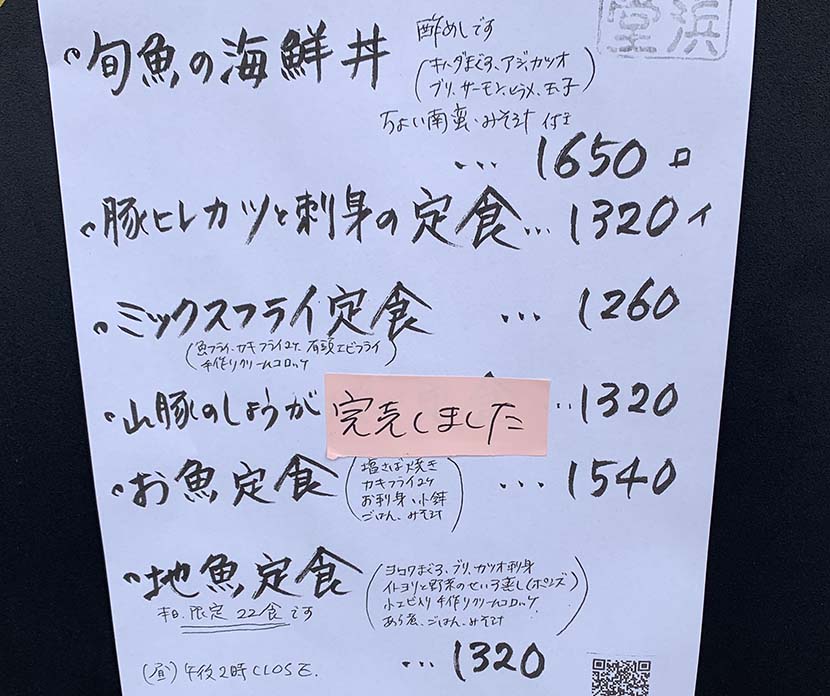 旬魚の海鮮丼 酢めしです
(キハダまぐろ、アジ、カツオ
ブリ、サーモン、ヒラメ、玉子)
南蛮・みそ汁 付き
... 1650 ロ
豚ヒレカツと刺身の定食... 1320 イ
ミックスフライ定食 ... 1260
(魚フライ、カキフライ2ケ、有頭エビフライ
手作りクリームコロッケ)
山豚のしょうが 完売しました ..1320
お魚定食 ... 1540
(塩さば焼き
カキフライ2ケ
お刺身・小鉢
ごはん、みそ汁)
地魚定食
本日、限定 22食です
(ヨコワまぐろ、ブリ、カツオ刺身
イトヨリと野菜のせいろ蒸し(ポンズ)
小エビ入り手作りクリームコロッケ
あら煮、ごはん、みそ汁)
... 1320
(昼)午後2時CLOSE.
浜
堂